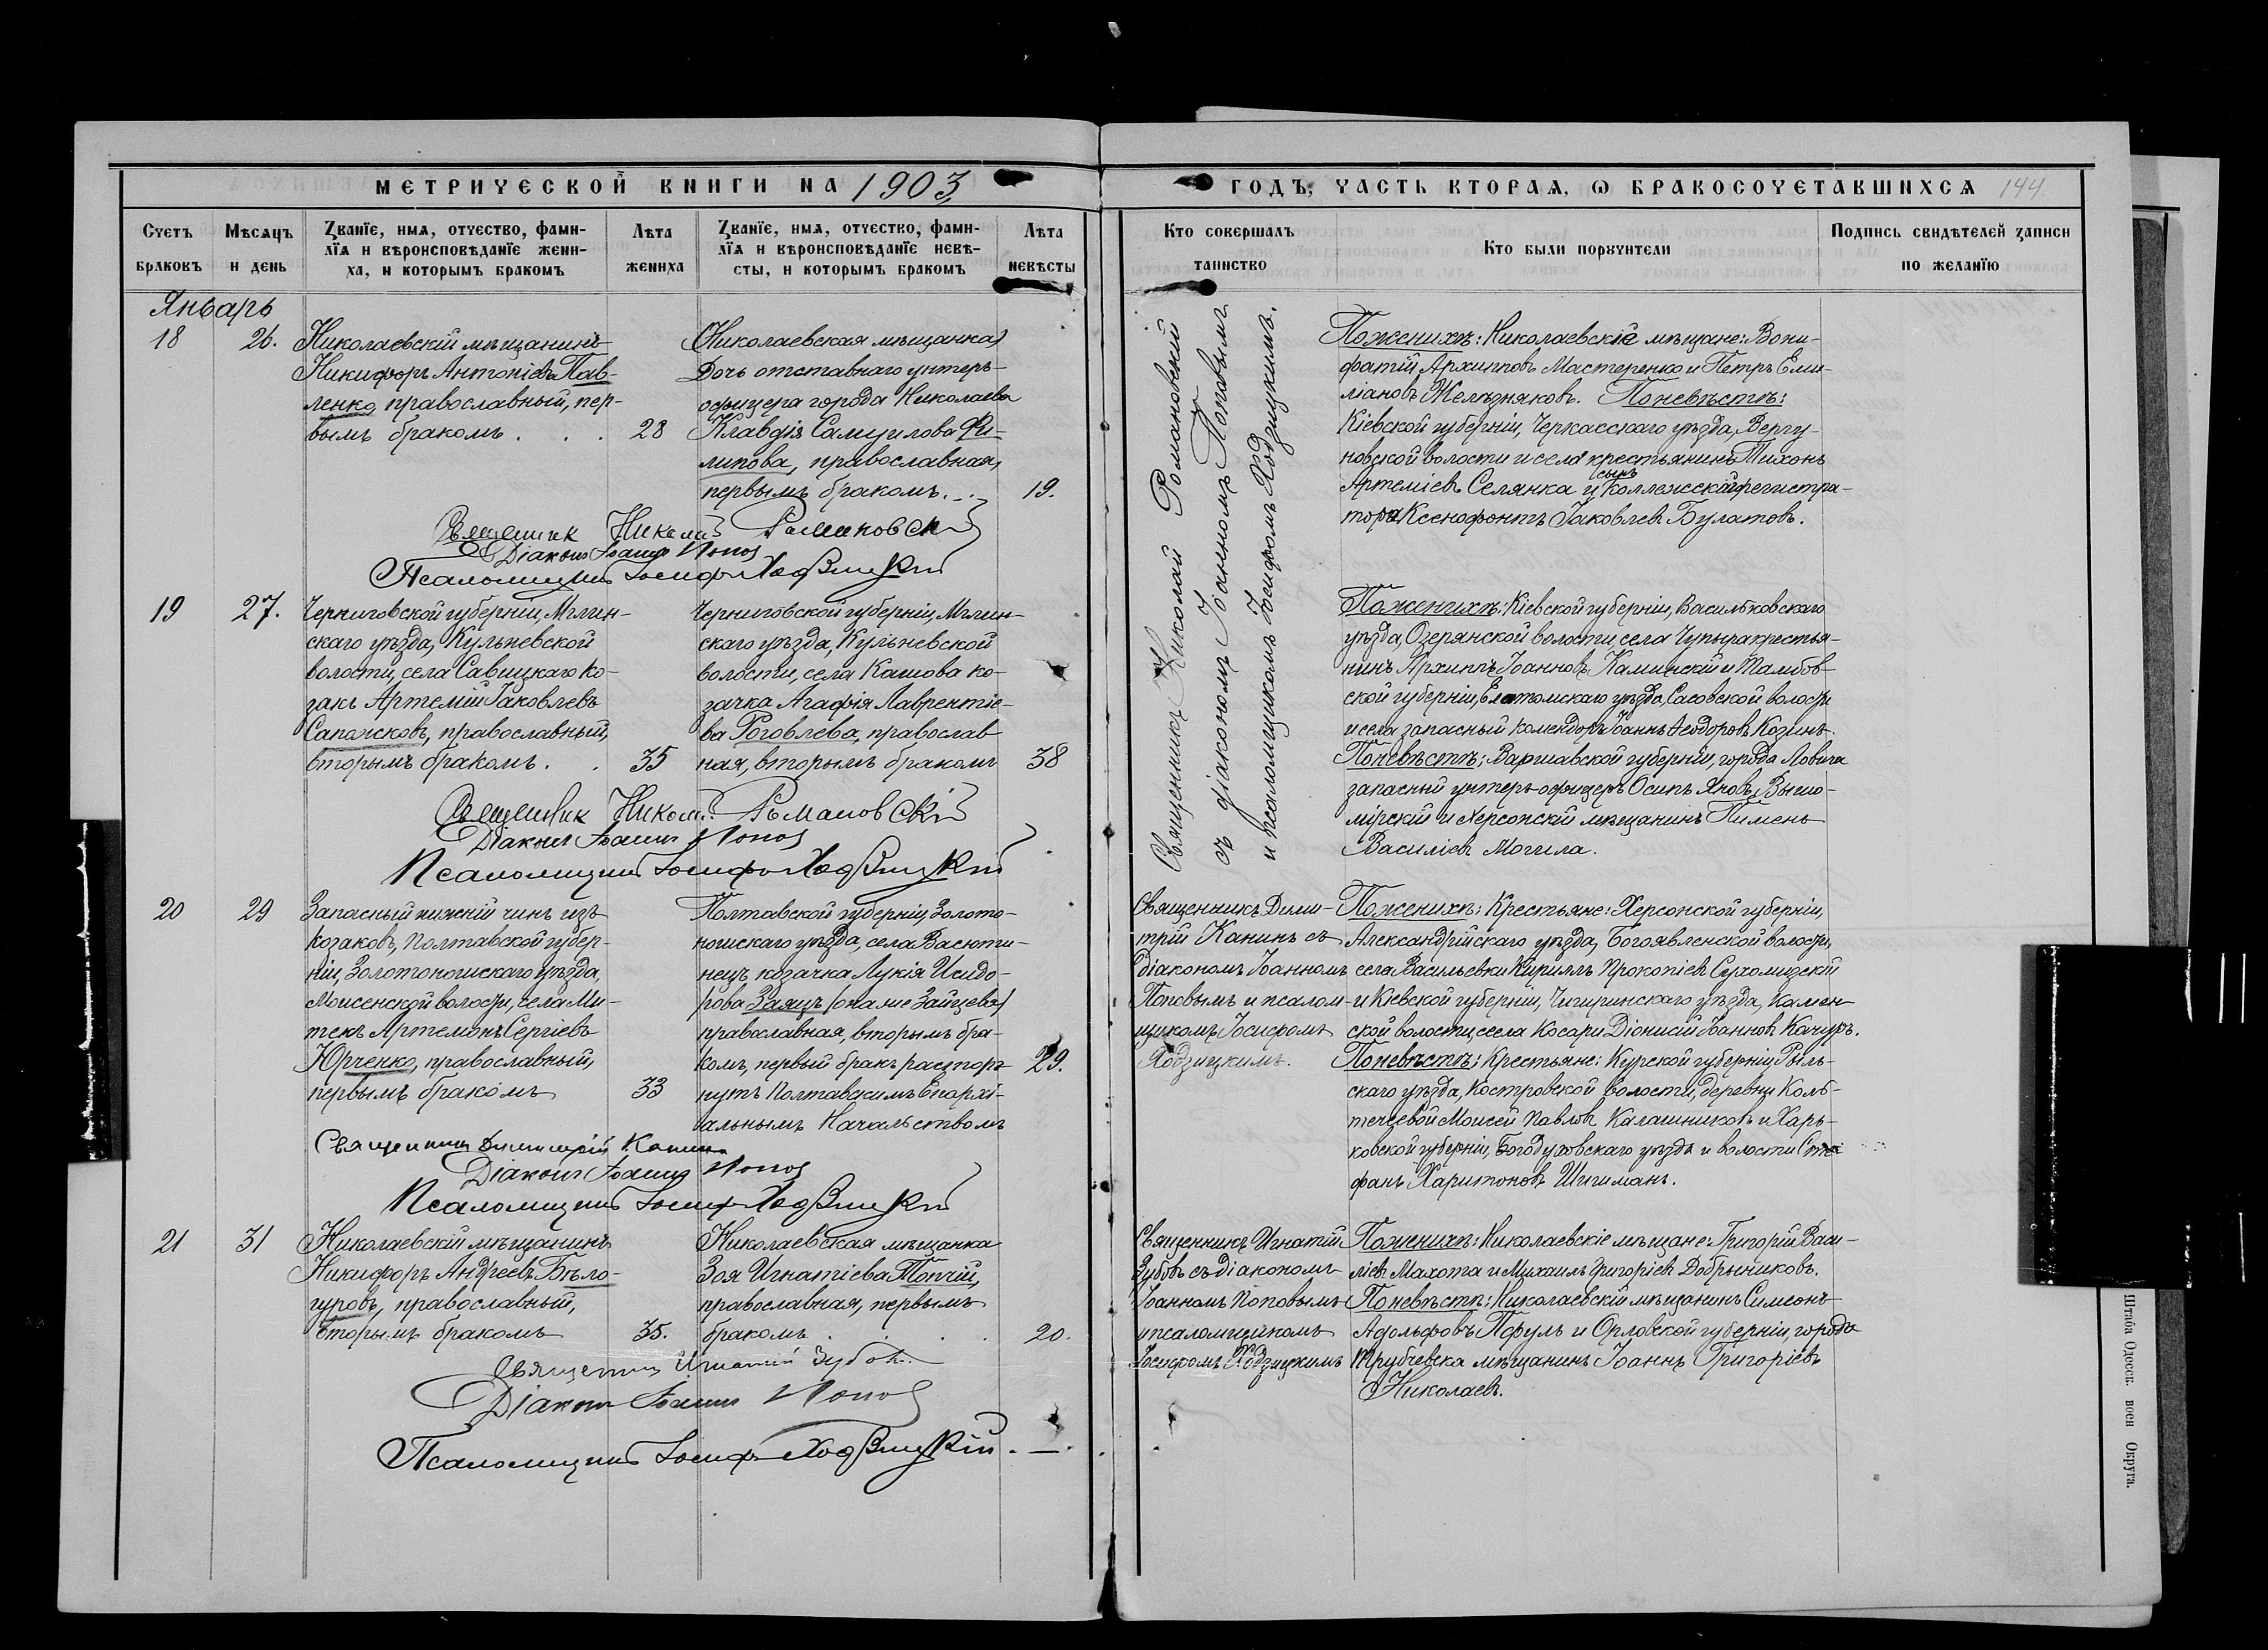 МЕТРИЧЕСКОЙ КНИГИ НА 1903
ГОДЪ, ЧАСТЬ ВТОРАЯ, Ѡ БРАКОСОЧЕТАВШИХСЯ 144
Счетъ браковъ
Мѣсяцъ и день
Званїе, имя, отчество, фами-
лїя и вѣроисповѣданїе жени-
ха, и которымъ бракомъ
Лѣта жениха
Званїе, имя, отчество, фами-
лїя и вѣроисповѣданїе невѣ-
сты, и которымъ бракомъ
Лѣта невѣсты
Кто совершалъ таинство
Кто были поручители
Подпись свидѣтелей записи
по желанїю
Январь
18
26.
Николаевскій мѣщанинъ
Никифоръ Антоніевъ Пав-
ленко, православный, пер-
вымъ бракомъ . . .
28
(Николаевская мѣщанка)
Дочь отставнаго унтеръ-
офицера города Николаева
Клавдія Самуилова Фи-
липова, православная,
первымъ бракомъ. . .
19.
Священникъ Николай Романовскій
съ діакономъ Іоанномъ Поповымъ
и псаломщикомъ Іосифомъ Ходзицкимъ.
По женихѣ: Николаевскіе мѣщане: Вони-
фатій Архипповъ Мастеренко и Петръ Еми-
ліановъ Желѣзняковъ. По невѣстѣ:
Кіевской губерніи, Черкасскаго уѣзда, Вергу-
новской волости и села крестьянинъ Тихонъ
Артеміевъ Селянка и сынъ Коллежскаго регистра-
тора Ксенофонтъ Іаковлевъ Булатовъ.
Священник Николай Романовскій
Діаконъ Іоаннъ Попов
Псаломщикъ Іосифъ Ходзицкій
19
27.
Черниговской губерніи, Мглин-
скаго уѣзда, Кульневской
волости, села Савицкаго ко-
закъ Артемій Іаковлевъ
Сапожковъ, православный,
вторымъ бракомъ . .
35
Черниговской губерніи, Мглин-
скаго уѣзда, Кульневской
волости, села Кашова ко-
зачка Агафія Лаврентіе-
ва Роговлева, православ
ная, вторымъ бракомъ
38
По женихѣ: Кіевской губерніи, Васильковскаго
уѣзда, Озерянской волости села Чупыра крестья-
нинъ Архиппъ Іоанновъ Каминскій и Тамбов-
ской губерніи, Елатомскаго уѣзда, Сасовской волости
и села запасный комендоръ Іоаннъ Ѳеодоровъ Козинъ.
По невѣстѣ: Варшавской губерніи, города Ловича
запасный унтеръ-офицеръ Осипъ Яновъ Вышо-
мірскій и Херсонскій мѣщанинъ Пименъ
Василіевъ Могила.
Священник Николай Романовскій
Діаконъ Іоаннъ Попов
Псаломщикъ Іосифъ Ходзицкій
20
29
Запасный нижній чинъ изъ
козаковъ, Полтавской губер-
ніи, Золотоношскаго уѣзда,
Моисенской волости, села Ми-
текъ Артемонъ Сергіевъ
Юрченко, православный,
первымъ бракомъ
33
Полтавской губерніи, Золото-
ношскаго уѣзда, села Васюти-
нецъ козачка Лукія Исидо-
рова Заяцъ (она же Зайцева)
православная, вторымъ бра-
комъ, первый бракъ расторг-
нутъ Полтавскимъ Епархі-
альнымъ Начальствомъ
29.
Священникъ Дими-
трій Канинъ съ
діакономъ Іоанномъ
Поповымъ и псалом-
щикомъ Іосифомъ
Ходзицкимъ.
По женихѣ: Крестьяне: Херсонской губерніи,
Александрійскаго уѣзда, Богоявленской волости,
села Васильевки Кириллъ Прокопіевъ Сухомидскій
и Кіевской губерніи, Чигиринскаго уѣзда, Камен-
ской волости, села Косари Діонисій Іоанновъ Качуръ.
По невѣстѣ: Крестьяне: Курской губерніи, Рыль-
скаго уѣзда, Костровской волости, деревни Коль-
течеевой Моисей Павловъ Калашниковъ и Харь-
ковской губерніи, Богодуховскаго уѣзда и волости Сте-
фанъ Харитоновъ Шишманъ.
Священникъ Димитрій Канинъ
Діаконъ Іоаннъ Попов
Псаломщикъ Іосифъ Ходзицкій
21
31
Николаевскій мѣщанинъ
Никифоръ Андреевъ Бѣло-
гуровъ, православный,
вторымъ бракомъ
35.
Николаевская мѣщанка
Зоя Игнатіева Топчій,
православная, первымъ
бракомъ . . . .
20.
Священникъ Игнатій
Зубовъ съ діакономъ
Іоанномъ Поповымъ
и псаломщикомъ
Іосифомъ Ходзицкимъ
По женихѣ: Николаевскіе мѣщане: Григорій Васи-
ліевъ Махота и Михаилъ Григоріевъ Добрыниковъ.
По невѣстѣ: Николаевскій мѣщанинъ Симеонъ
Адольфовъ Пфуль и Орловской губерніи, города
Трубчевска мѣщанинъ Іоаннъ Григоріевъ
Николаевъ.
Священникъ Игнатій Зубовъ.
Діаконъ Іоаннъ Попов
Псаломщикъ Іосифъ Ходзицкій.
Штаба Одесск. воен Округа.